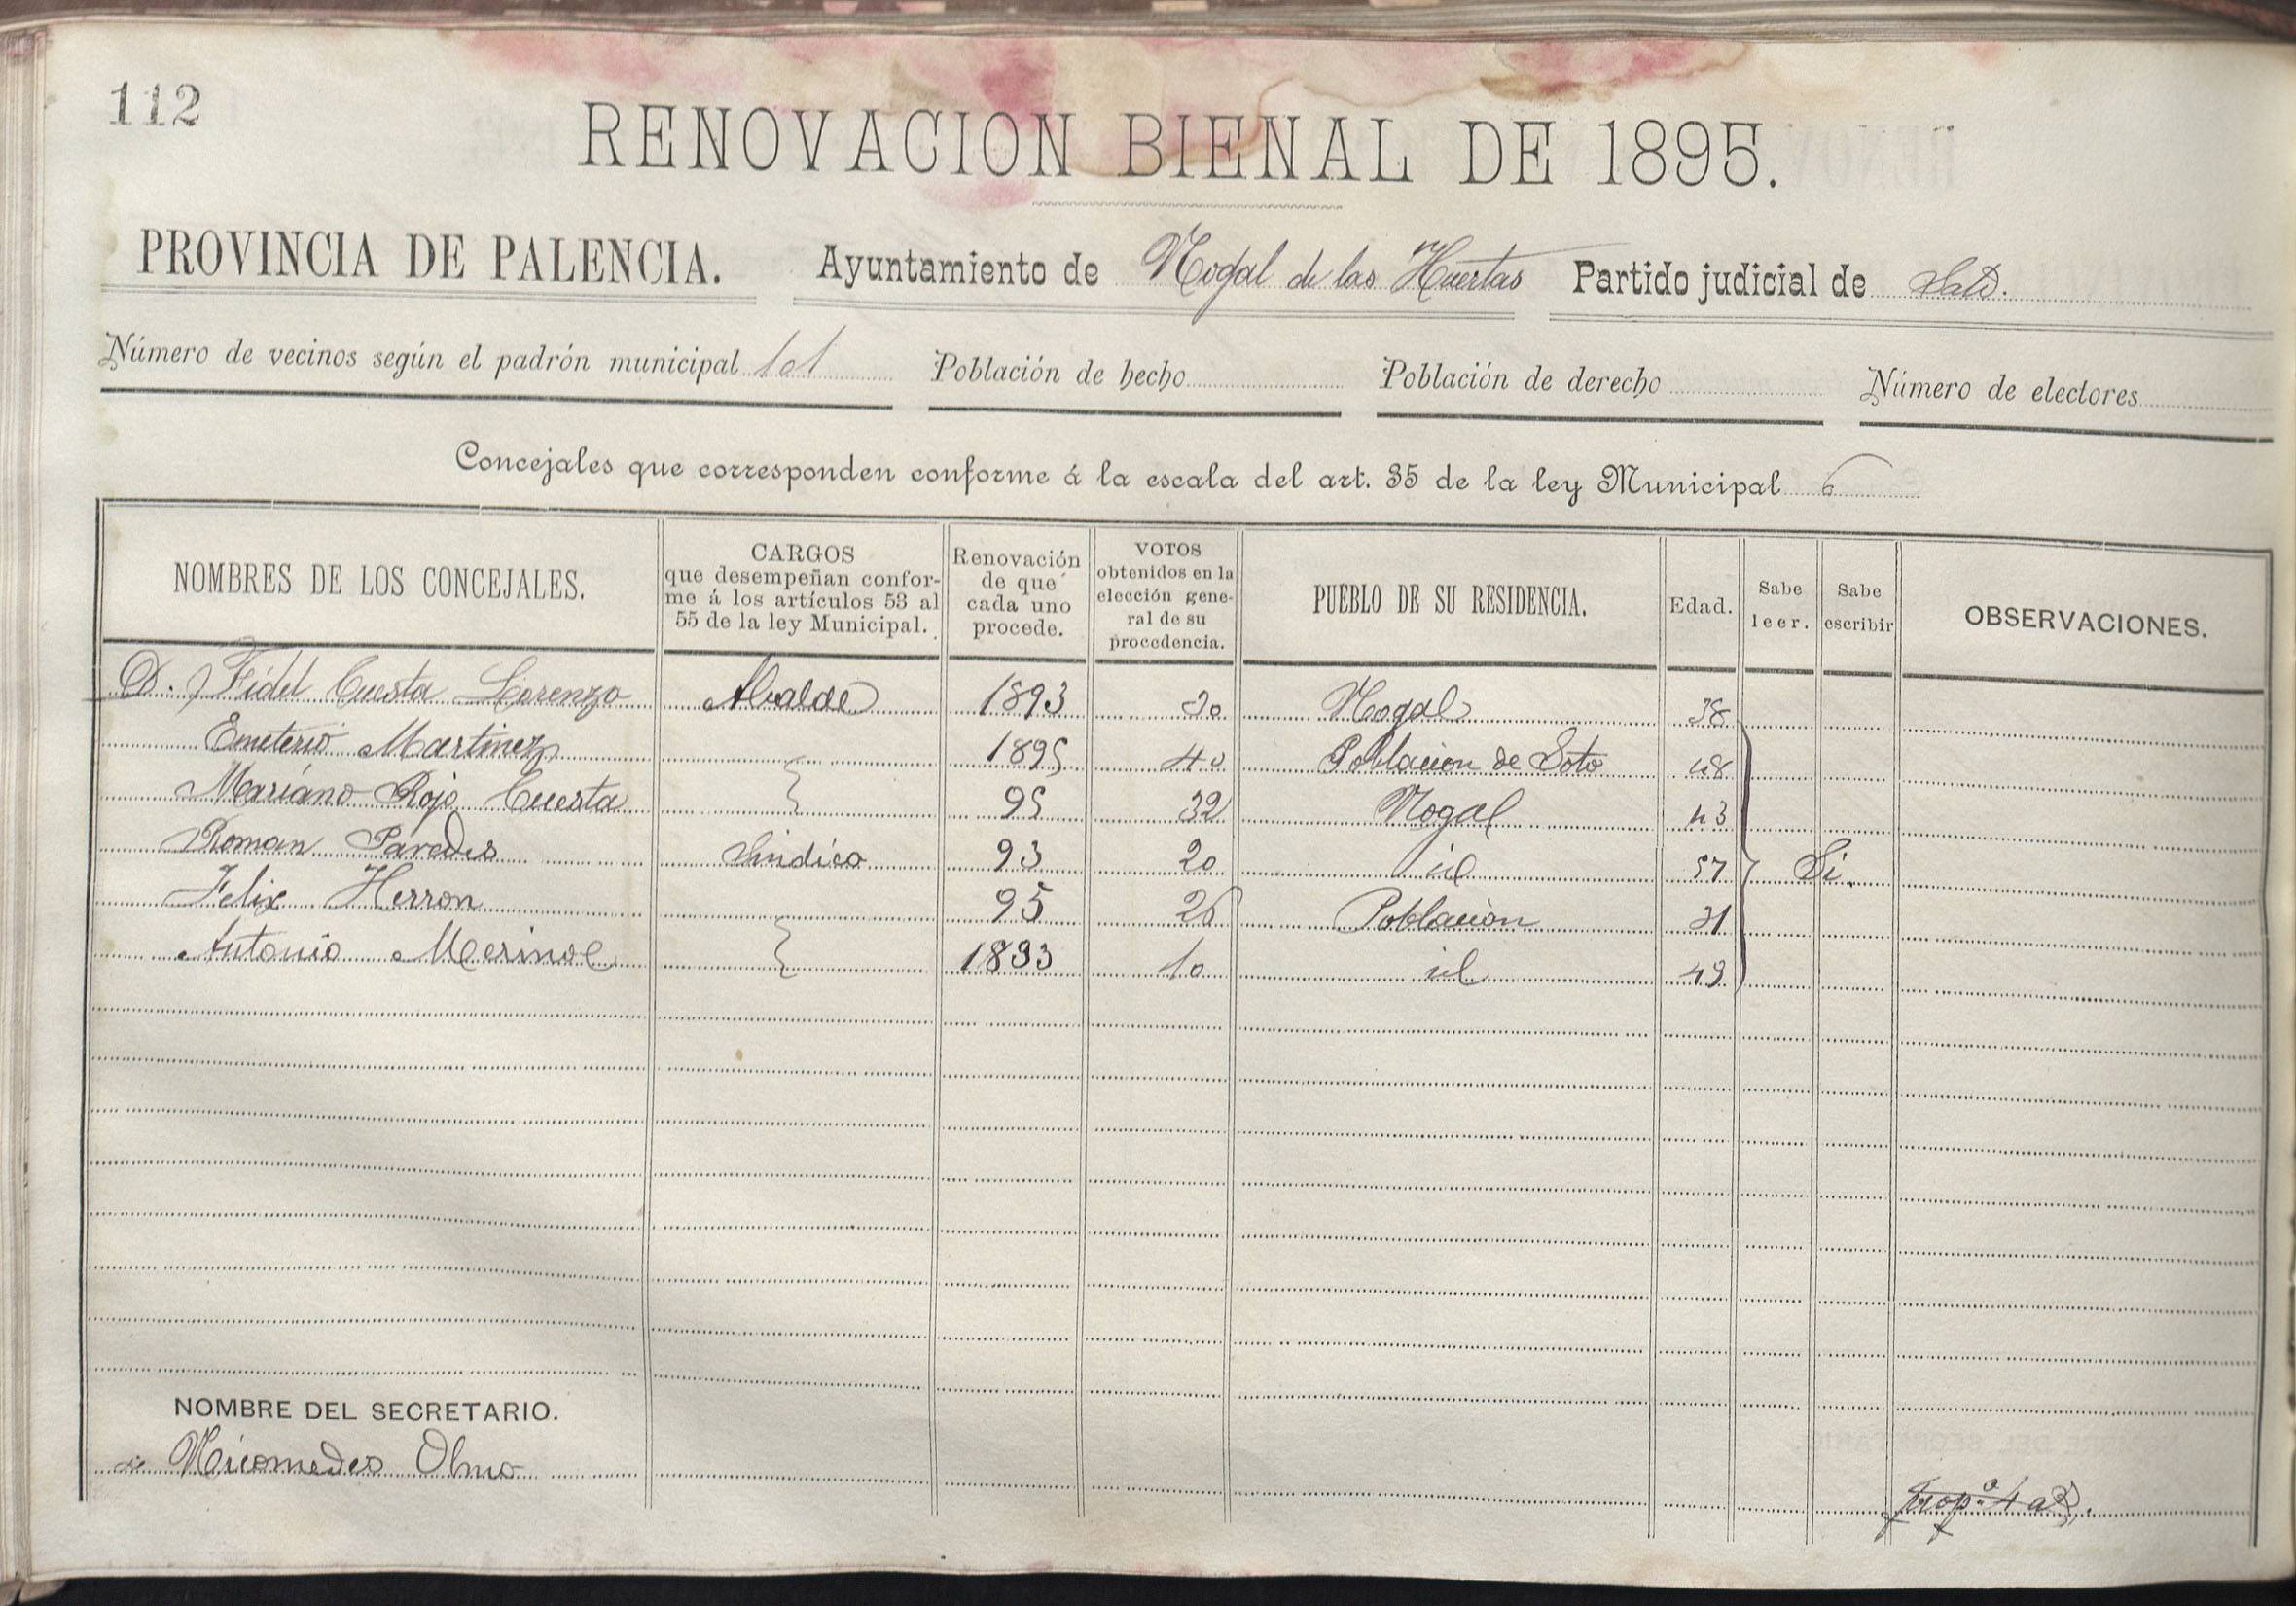 112
RENOVACION BIENAL DE 1895.
PROVINCIA DE PALENCIA. Ayuntamiento de Nogal de las Huertas Partido judicial de
Número de vecinos según el padrón municipal 101 Población de hecho Población de derecho Número de electores
Concejales que corresponden conforme á la escala del art. 35 de la ley Municipal 6
NOMBRES DE LOS CONCEJALES. CARGOS que desempeñan conforme á los artículos 53 al 55 de la ley Municipal. Renovación de que cada uno procede. VOTOS obtenidos en la elección general de su procedencia. PUEBLO DE SU RESIDENCIA. Edad. Sabe leer. Sabe escribir OBSERVACIONES.
D. Fidel Cuesta Lorenzo Alcalde 1893 20 Nogal 38
Emeterio Martinez 1895 40 Poblacion de Soto 48
Mariano Rojo Cuesta 95 32 Nogal 43
Roman Paredes Sindico 93 20 id 57 Si
Felix Herron 95 26 Poblacion 31
Antonio Merino 1893 10 id 49
NOMBRE DEL SECRETARIO.
Nicomedes Olmo